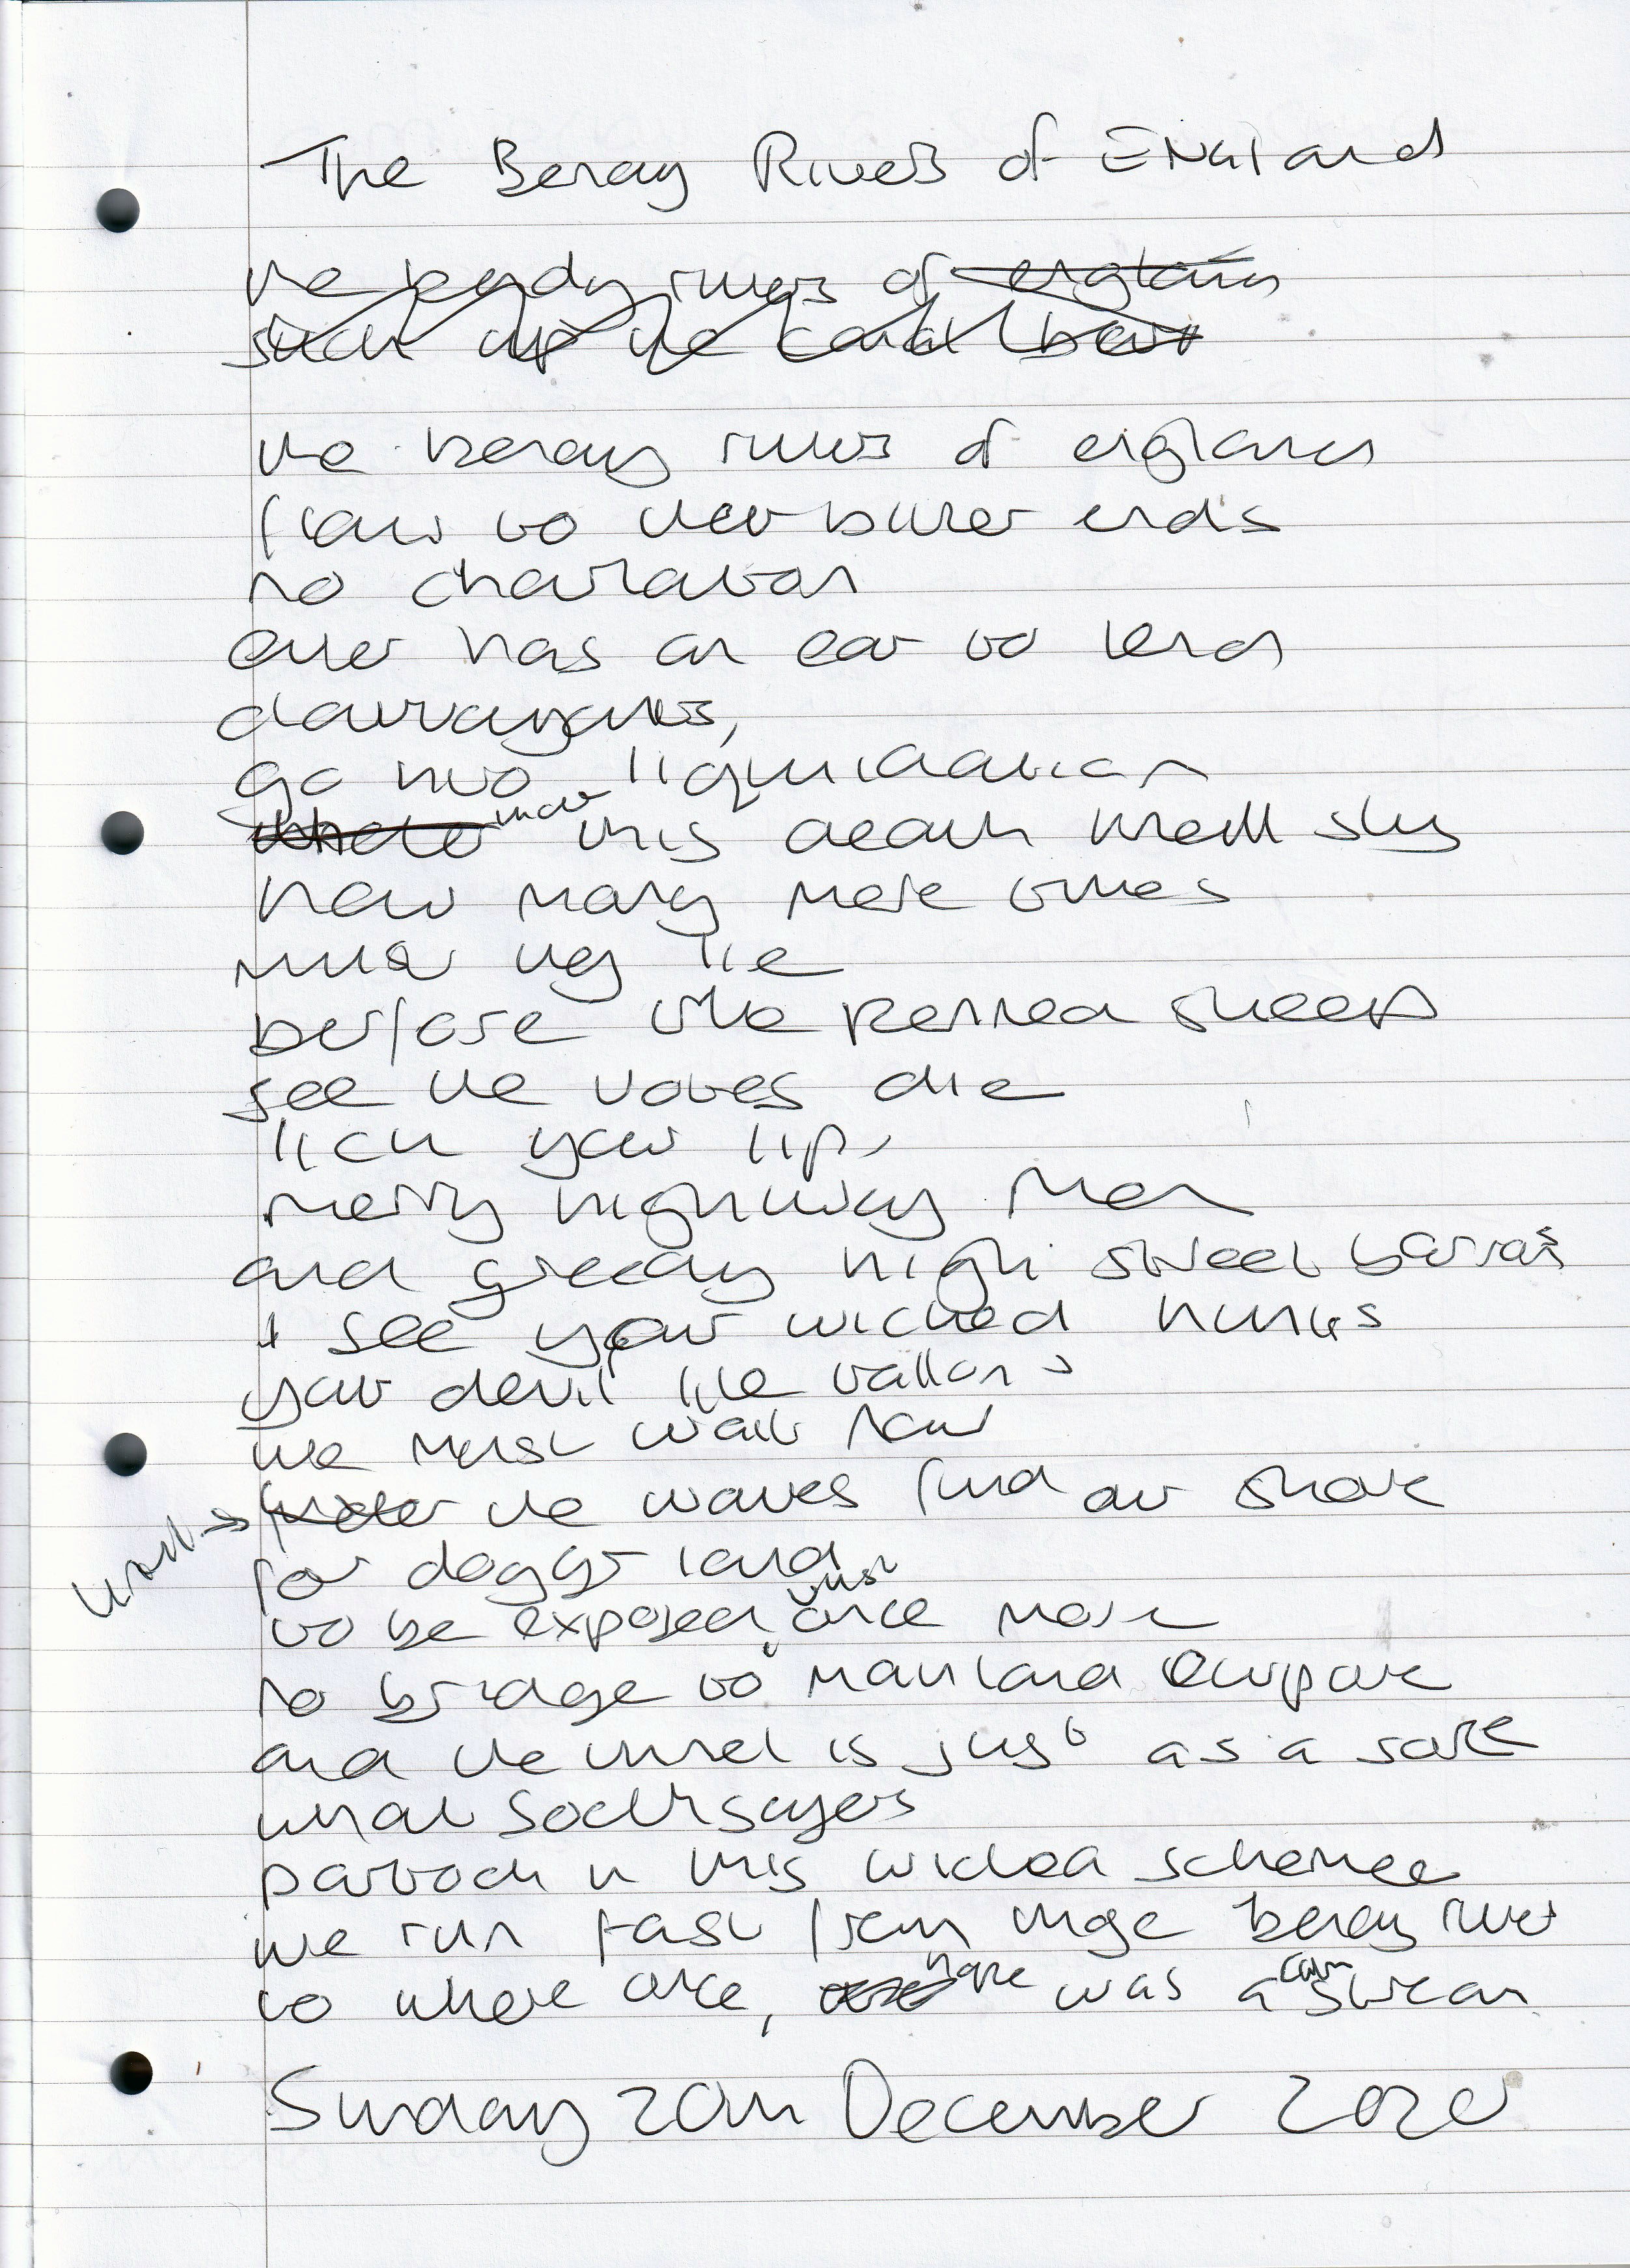 The Bendy Rivers of ENGLand
the bendy rivers of england
suck up the
the bendy rivers of england
flow to their bitter ends
no charlatan
ever has an ear to lend
go into liquidation
under this death knell sky
how many more times
must they lie
before the penned sheep
see the votes die
lick your lips
merry highway men
and greedy high street barons
I see your wicked hunks
your devil like talons
we must wait now
until → the waves find our shore
for dogger land
to be exposed once more
no bridge to mainland europe
and the tunnel is just as a safe
what soothsayers
partook in this wicked scheme
we run fast from thine bendy river
to where once, there was a calm stream
Sunday 20th December 2020